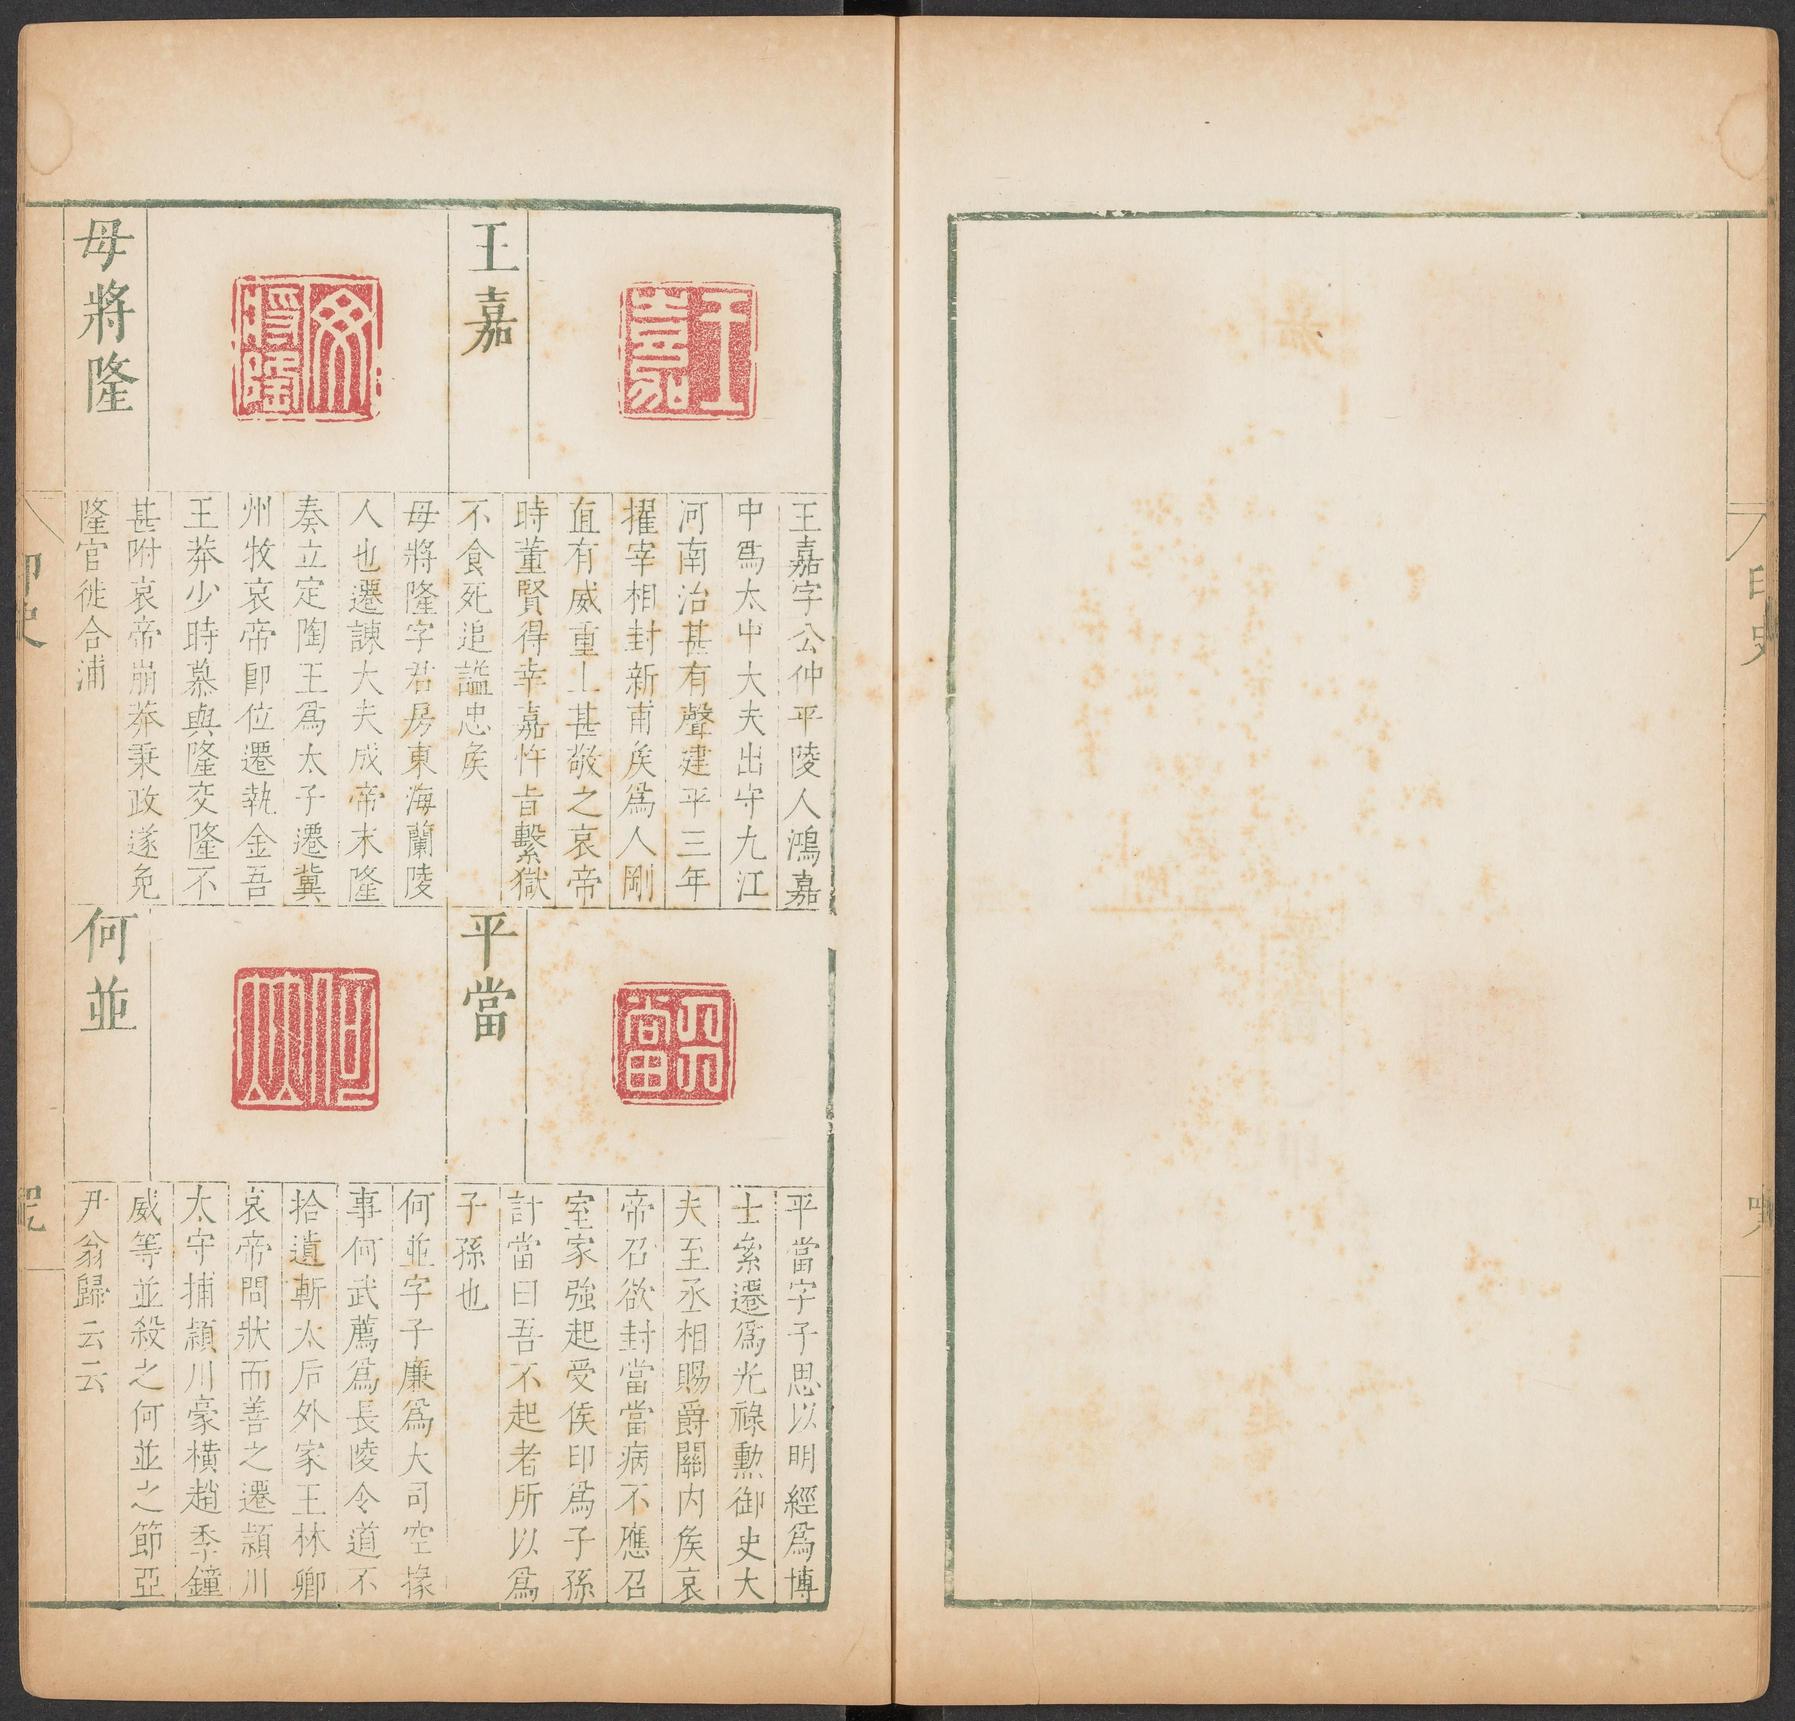 王嘉
王嘉字公仲平陵人鴻嘉
中爲太中大夫出守九江
河南治甚有聲建平三年
擢宰相封新甫矦爲人剛
直有威重上甚敬之哀帝
時董賢得幸嘉忤旨繫獄
不食死追謚忠矦
毋將隆
毋將隆字君房東海蘭陵
人也遷諫大夫成帝末隆
奏立定陶王爲太子遷冀
州牧哀帝卽位遷執金吾
王莽少時慕與隆交隆不
甚附哀帝崩莽秉政遂免
隆官徙合浦
平當
平當字子思以明經爲博
士絫遷爲光祿勳御史大
夫至丞相賜爵關内矦哀
帝召欲封當當病不應召
室家強起受侯印爲子孫
計當曰吾不起者所以爲
子孫也
何並
何並字子廉爲大司空掾
事何武薦爲長陵令道不
拾遺斬太后外家王林卿
哀帝問狀而善之遷潁川
太守捕潁川豪橫趙季鐘
威等並殺之何並之節亞
尹翁歸云云
印史